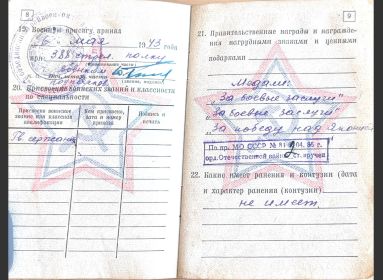 8
19. Военную присягу принял
" мая 1943 года
при 388 стрел. полку
20. Присвоение воинских званий и классности
по специальности
Присвоен воинское звание или классная квалификация
Кем присвоено, дата и номер приказа
Подпись и печать
сержант
9
21. Правительственные награды и награждения нагрудными знаками и ценными
подарками
Медали:
"За боевые заслуги"
"За боевые заслуги"
"За победу над
По пр. МО СССР № 81
орд. Отечественной войны ст. вручен
22. Какие имеет ранения и контузии (дата
и характер ранения (контузии)
не имеет